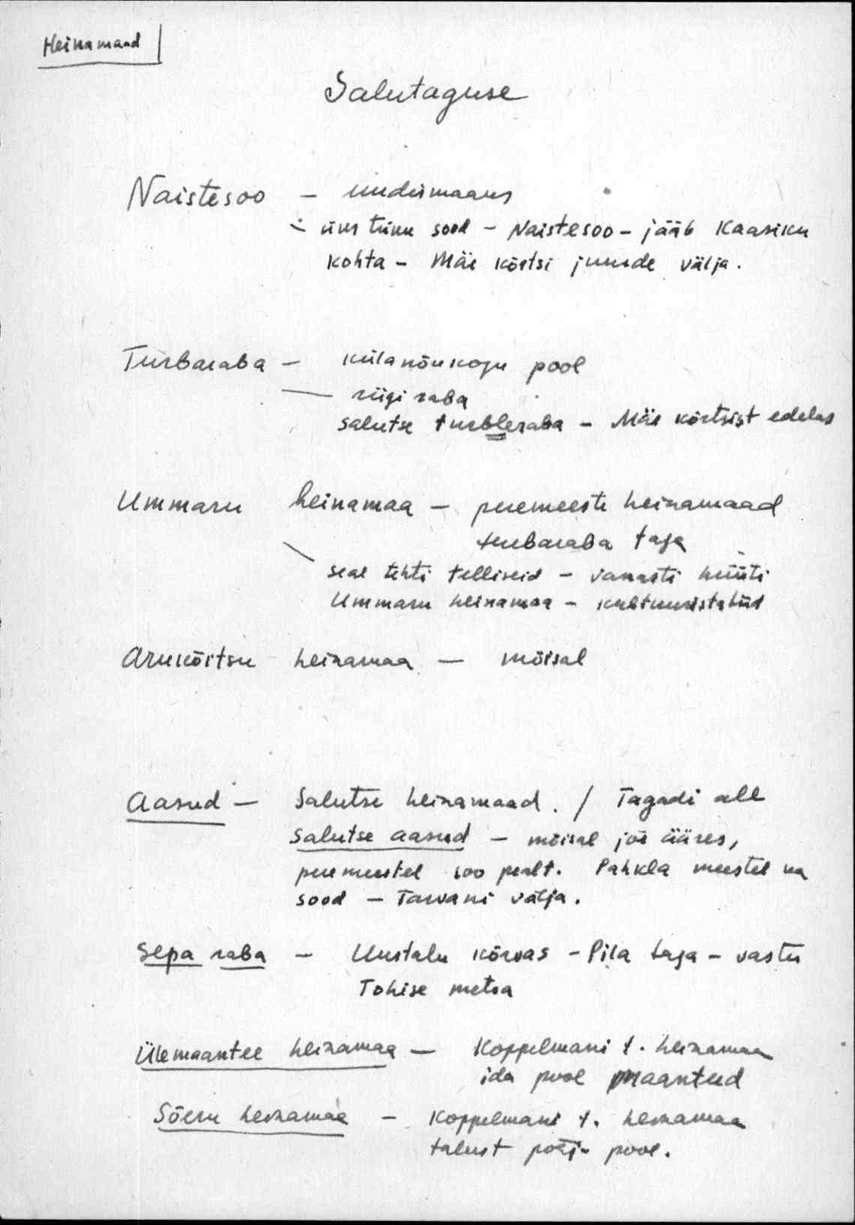 Heinamaad
Salutaguse
Naistesoo – uudismaaus
– üks tünn sood – Naistesoo – jääb Kaasiku
kohta – Mäe kõrtsi juurde välja.
Turbaraba – külanõukogu pool
– riigi raba
Salutse turbleraba – Mäe kõrtsist edelas
Ummaru heinamaa – peremeeste heinamaad
turbaraba taga
seal tehti telliseid – vanasti hüüti
Ummaru heinamaa – kultuuristatud
Arukõrtsu heinamaa – mõisal
Aasud – Salutse heinamaad. / Tagadi all
Salutse aasud – mõisal jõe ääres,
peremeestel soo pealt. Pahkla meestel ka
sood – Tarvani välja.
Sepa raba – Uustalu kõrvas – Pila taga – vastu
Tohise metsa
Ülemaantee heinamaa – Koppelmani t. heinamaa
ida pool maanteed
Sõeru heinamaa – Koppelmani t. heinamaa
talust põhja pool.